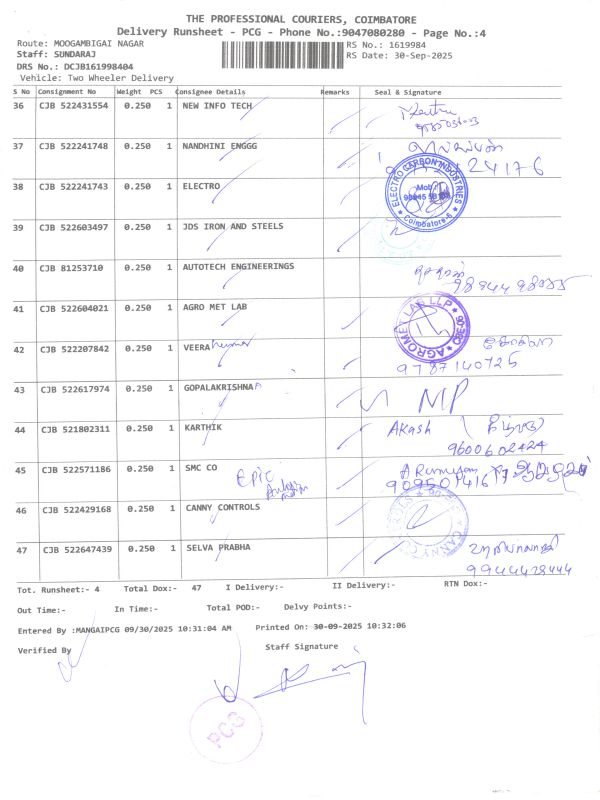 THE PROFESSIONAL COURIERS, COIMBATORE
Delivery Runsheet - PCG - Phone No.:9047080280 - Page No.:4
Route: MOOGAMBIGAI NAGAR
RS No.: 1619984
Staff: SUNDARAJ
RS Date: 30-Sep-2025
DRS No.: DCJB161998404
Vehicle: Two Wheeler Delivery
S No Consignment No Weight PCS Consignee Details Remarks Seal & Signature
36 CJB 522431554 0.250 1 NEW INFO TECH
37 CJB 522241748 0.250 1 NANDHINI ENGGG
24176
38 CJB 522241743 0.250 1 ELECTRO
ELECTRO CARBON INDUSTRIES
Mob
Coimbatore-6
39 CJB 522603497 0.250 1 JDS IRON AND STEELS
40 CJB 81253710 0.250 1 AUTOTECH ENGINEERINGS
41 CJB 522604021 0.250 1 AGRO MET LAB
AGROMET LAB LLP CBE-06
42 CJB 522207842 0.250 1 VEERA Kumar
9787140725
43 CJB 522617974 0.250 1 GOPALAKRISHNA
MP
44 CJB 521802311 0.250 1 KARTHIK
Akash
9600602424
45 CJB 522571186 0.250 1 SMC CO
Epic
46 CJB 522429168 0.250 1 CANNY CONTROLS
47 CJB 522647439 0.250 1 SELVA PRABHA
9944428444
Tot. Runsheet:- 4 Total Dox:- 47 I Delivery:- II Delivery:- RTN Dox:-
Out Time:- In Time:- Total POD:- Delvy Points:-
Entered By :MANGAIPCG 09/30/2025 10:31:04 AM Printed On: 30-09-2025 10:32:06
Verified By Staff Signature
PCG